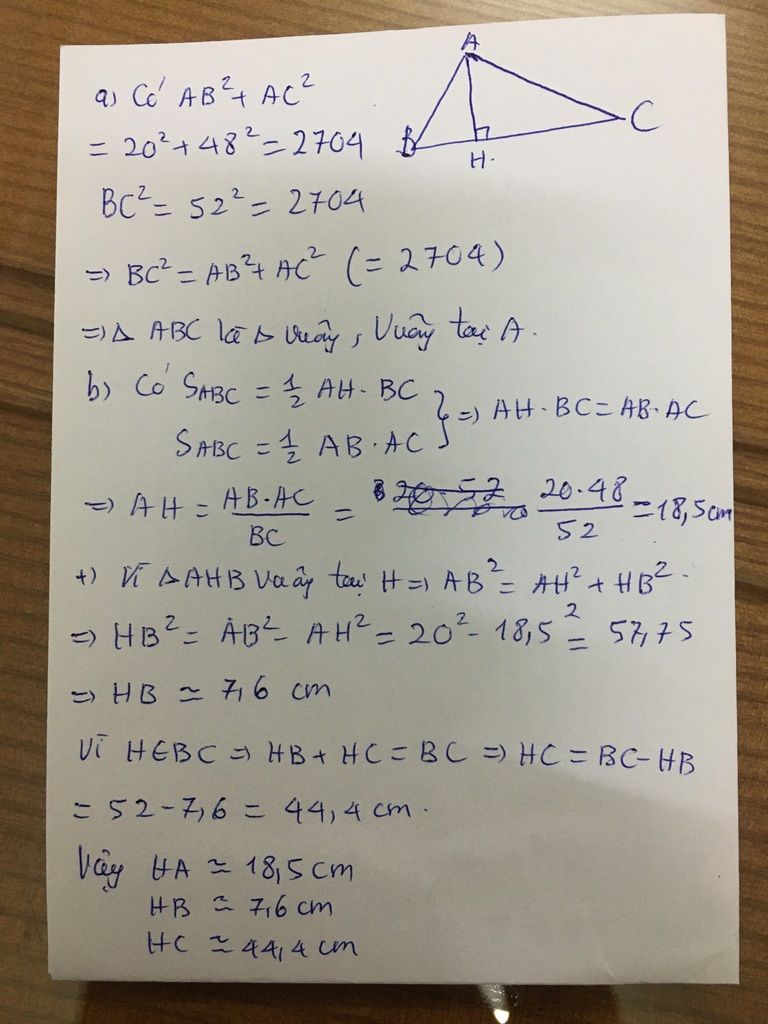 A
B
H.
C
a) Có AB² + AC²
= 20² + 48² = 2704
BC² = 52² = 2704
=> BC² = AB² + AC² (= 2704)
=> Δ ABC là Δ vuông, Vuông tại A.
b) Có SABC = 1/2 AH · BC
SABC = 1/2 AB · AC } => AH · BC = AB · AC
=> AH = AB·AC / BC = 20·48 / 52 = 18,5cm
+) Vì ΔAHB Vuông tại H => AB² = AH² + HB².
=> HB² = AB² - AH² = 20² - 18,5² = 57,75
=> HB ≃ 7,6 cm
Vì H∈BC => HB + HC = BC => HC = BC - HB
= 52 - 7,6 = 44,4 cm.
Vậy HA ≃ 18,5 cm
HB ≃ 7,6 cm
HC ≃ 44,4 cm